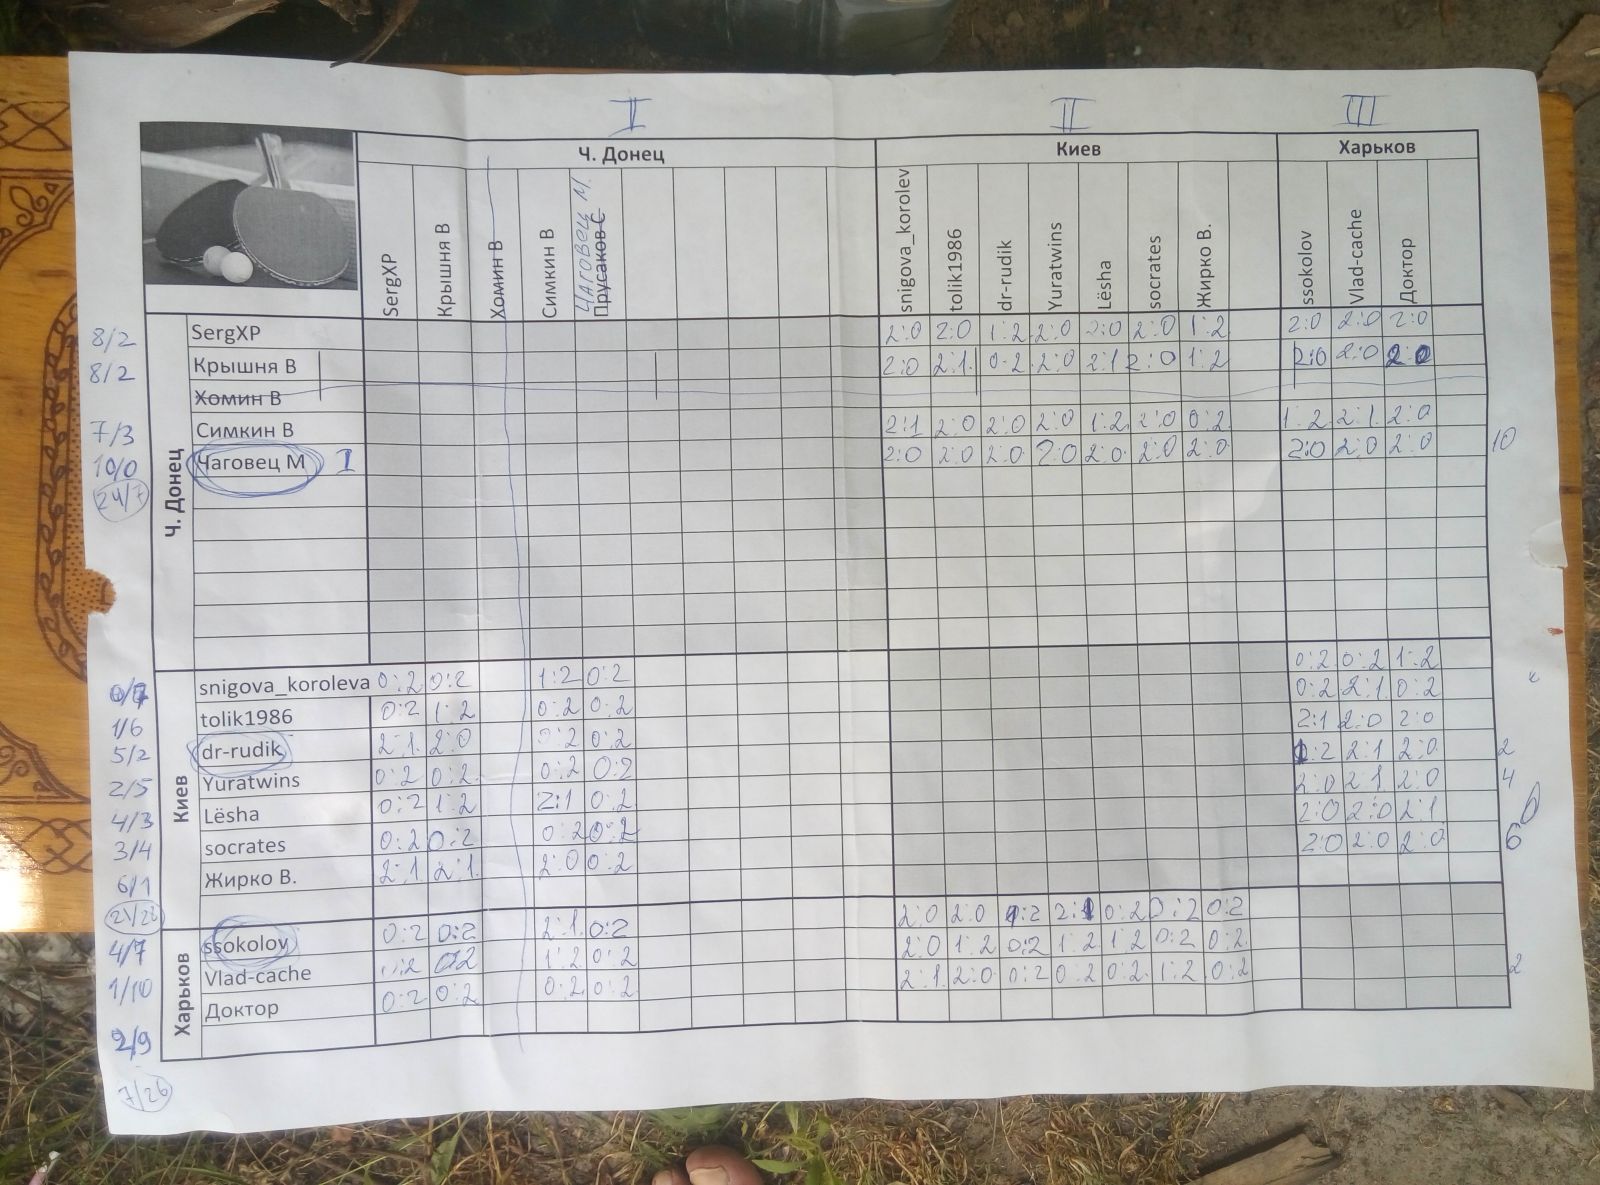 I II III
Ч. Донец Киев Харьков
SergXP Крышня В Хомин В Симкин В Чаговец М. Прусаков С snigova_korolev tolik1986 dr-rudik Yuratwins Lёsha socrates Жирко В. ssokolov Vlad-cache Доктор
Ч. Донец
8/2 SergXP 2:0 2:0 1:2 2:0 2:0 2:0 1:2 2:0 2:0 2:0
8/2 Крышня В 2:0 2:1 0:2 2:0 2:1 2:0 1:2 2:0 2:0 2:0
Хомин В
7/3 Симкин В 2:1 2:0 2:0 2:0 1:2 2:0 0:2 1:2 2:1 2:0
10/0 Чаговец М I 2:0 2:0 2:0 2:0 2:0 2:0 2:0 2:0 2:0 2:0 10
24/7
Киев
snigova_koroleva 0:2 0:2 1:2 0:2 0:2 0:2 1:2
1/6 tolik1986 0:2 1:2 0:2 0:2 0:2 2:1 0:2
5/2 dr-rudik 2:1 2:0 0:2 0:2 2:1 2:0 2:0
2/5 Yuratwins 0:2 0:2 0:2 0:2 :2 2:1 2:0 2
4/3 Lёsha 0:2 1:2 2:1 0:2 2:0 2:1 2:0 4
3/4 socrates 0:2 0:2 0:2 0:2 2:0 2:0 2:1
6/1 Жирко В. 2:1 2:1 2:0 0:2 2:0 2:0 2:0 6
Харьков
4/7 ssokolov 0:2 0:2 2:1 0:2 2:0 2:0 :2 2:1 0:2 0:2 0:2
1/10 Vlad-cache 0:2 0:2 1:2 0:2 2:0 1:2 0:2 1:2 1:2 0:2 0:2
2/9 Доктор 0:2 0:2 0:2 0:2 2:1 2:0 0:2 0:2 0:2 1:2 0:2 2
7/26